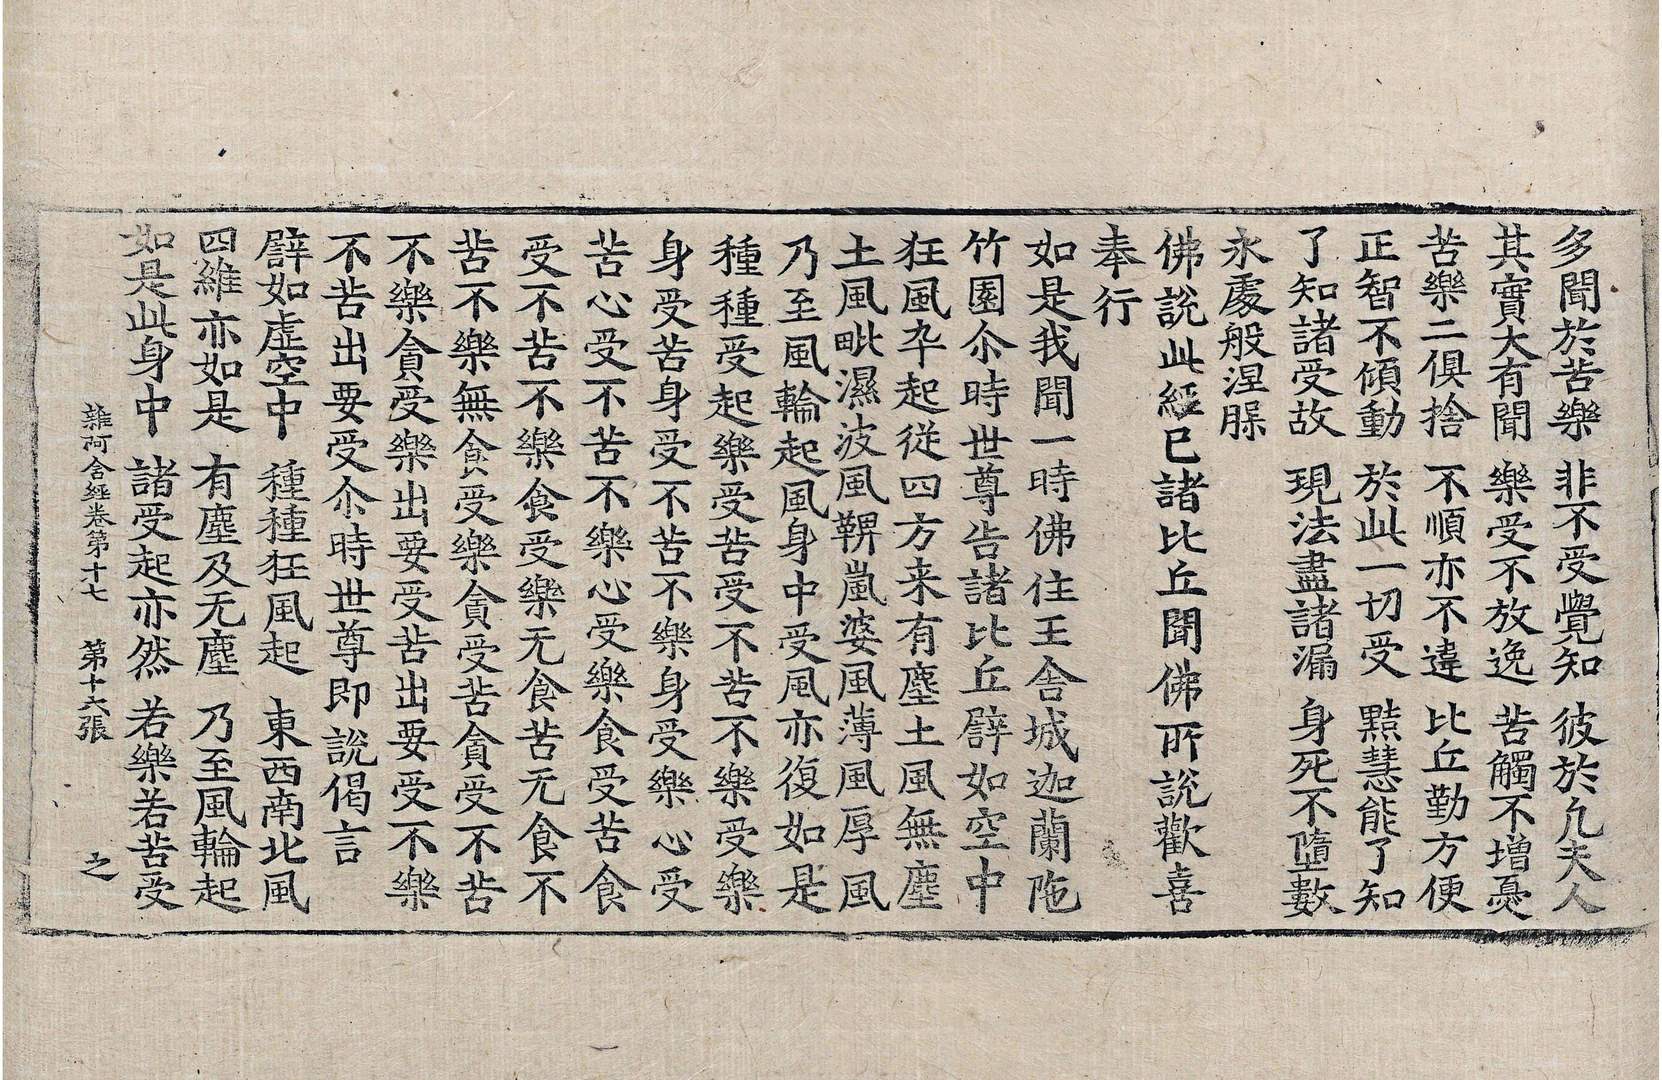 多聞於苦樂 非不受覺知 彼於凢夫人
其實大有聞 樂受不放逸 苦觸不增憂
苦樂二俱捨 不順亦不違 比丘勤方便
正智不傾動 於此一切受 黠慧能了知
了知諸受故 現法盡諸漏 身死不墮數
永處般涅脵
佛說此經已諸比丘聞佛所說歡喜
奉行
如是我聞一時佛住王舍城迦蘭陁
竹園尒時世尊告諸比丘譬如空中
狂風卒起從四方来有塵土風無塵
土風毗濕波風鞞嵐婆風薄風厚風
乃至風輪起風身中受風亦復如是
種種受起樂受苦受不苦不樂受樂
身受苦身受不苦不樂身受樂心受
苦心受不苦不樂心受樂食受苦食
受不苦不樂食受樂无食苦无食不
苦不樂無食受樂貪受苦貪受不苦
不樂貪受樂出要受苦出要受不樂
不苦出要受尒時世尊即說偈言
譬如虛空中 種種狂風起 東西南北風
四維亦如是 有塵及无塵 乃至風輪起
如是此身中 諸受起亦然 若樂若苦受
雜阿含經卷第十七 第十六張 之